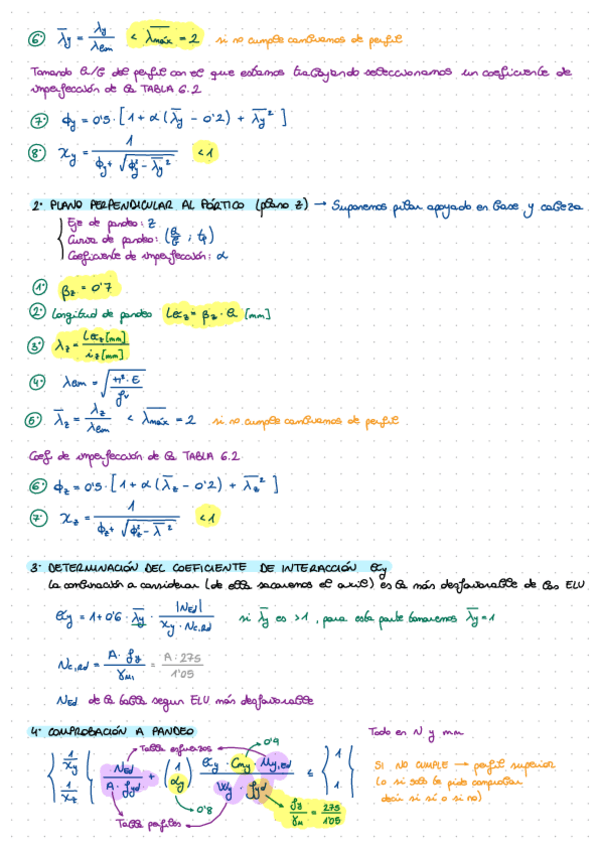 6· λ̄y = λy / λlim < λ̄máx = 2 si no cumple cambiamos de perfil
Tomando h/b del perfil con el que estamos trabajando seleccionamos un coeficiente de
imperfección de la TABLA 6.2
7· ϕy = 0'5 · [1 + α (λ̄y - 0'2) + λ̄y²]
8· χy = 1 / (ϕy + √(ϕy² - λ̄y²)) < 1
2· PLANO PERPENDICULAR AL PÓRTICO (plano z) → Suponemos pilar apoyado en base y cabeza
Eje de pandeo: z
Curva de pandeo: (h/b ; tf)
Coeficiente de imperfección: α
1· βz = 0'7
2· Longitud de pandeo Lkz = βz · h [mm]
3· λz = Lkz [mm] / iz [mm]
4· λlim = √(π² · E / fy)
5· λ̄z = λz / λlim < λ̄máx = 2 si no cumple cambiamos de perfil
Coef de imperfección de la TABLA 6.2
6· ϕz = 0'5 · [1 + α (λ̄z - 0'2) + λ̄z²]
7· χz = 1 / (ϕz + √(ϕz² - λ̄²)) < 1
3· DETERMINACIÓN DEL COEFICIENTE DE INTERACCIÓN ky
La combinación a considerar (de ella sacaremos el axil) es la más desfavorable de los ELU
ky = 1 + 0'6 · λ̄y · |NEd| / (χy · Nc,Rd) si λ̄y es > 1, para esta parte tomaremos λ̄y = 1
Nc,Rd = A · fy / γM1 = A · 275 / 1'05
NEd de la tabla segun ELU más desfavorable
4· COMPROBACIÓN A PANDEO
Todo en N y mm
Tabla esfuerzos
0'9
{1/χy 1/χz} { NEd / (A · fyd) + (1 αy) ky · Cmy · My,Ed / (Wy · fyd) ≤ {1 1}
SI NO CUMPLE → perfil superior
(o si solo te pide comprobar
decir si sí o si no)
0'8
fy / γM = 275 / 1'05
Tabla perfiles